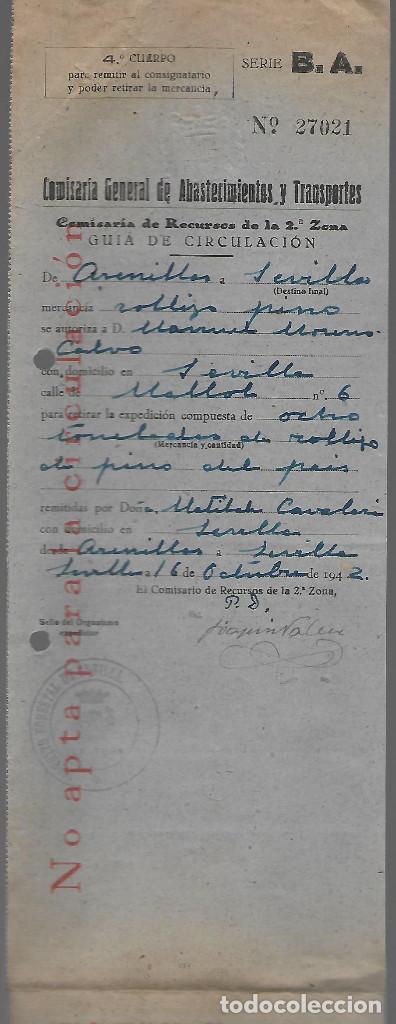 4.º CUERPO
para remitir al consignatario
y poder retirar la mercancia,
SERIE B. A.
Nº 27021
Comisaría General de Abastecimientos y Transportes
Comisaría de Recursos de la 2.ª Zona
GUIA DE CIRCULACIÓN
De Arenillas a Sevilla
(Destino final)
mercancia rollizo pino
se autoriza a D. Manuel Moreno
Calvo
con domicilio en Sevilla
calle de Mallol nº. 6
para retirar la expedición compuesta de ocho
toneladas de rollizo
(Mercancia y cantidad)
de pino del pais
remitidas por Doña. Matilde Cavaleri
con domicilio en Sevilla
desde Arenillas a Sevilla
Sevilla a 16 de Octubre de 1942.
El Comisario de Recursos de la 2.ª Zona,
P. D.
Sello del Organismo
expedidor
Joaquin
No apta para la circulación
todocoleccion